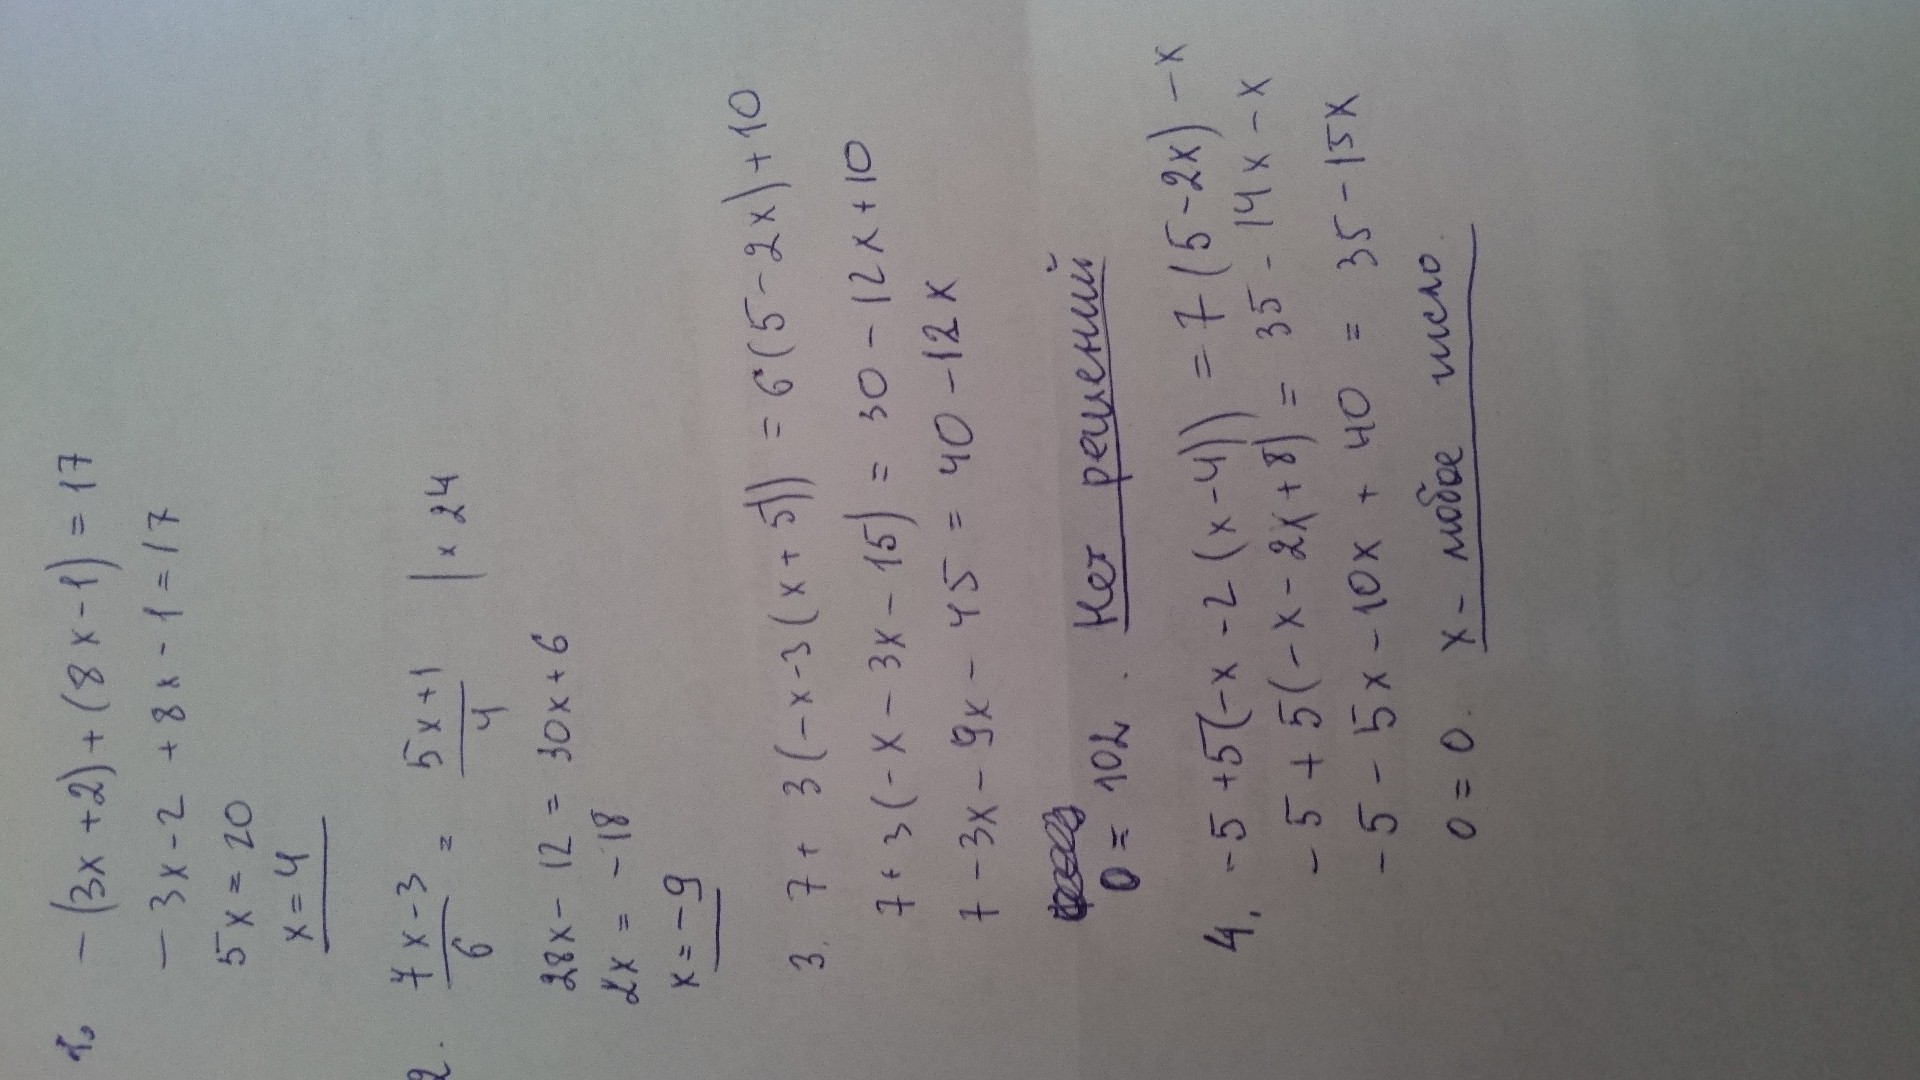 1. -(3x+2)+(8x-1)=17
-3x-2+8x-1=17
5x=20
x=4
2. (7x-3)/6 = (5x+1)/4 | x 24
28x-12=30x+6
2x=-18
x=-9
3. 7+3(-x-3(x+5))=6(5-2x)+10
7+3(-x-3x-15)=30-12x+10
7-3x-9x-45=40-12x
0=102. Нет решений
4. -5+5(-x-2(x-4))=7(5-2x)-x
-5+5(-x-2x+8)=35-14x-x
-5-5x-10x+40=35-15x
0=0. x- любое число.